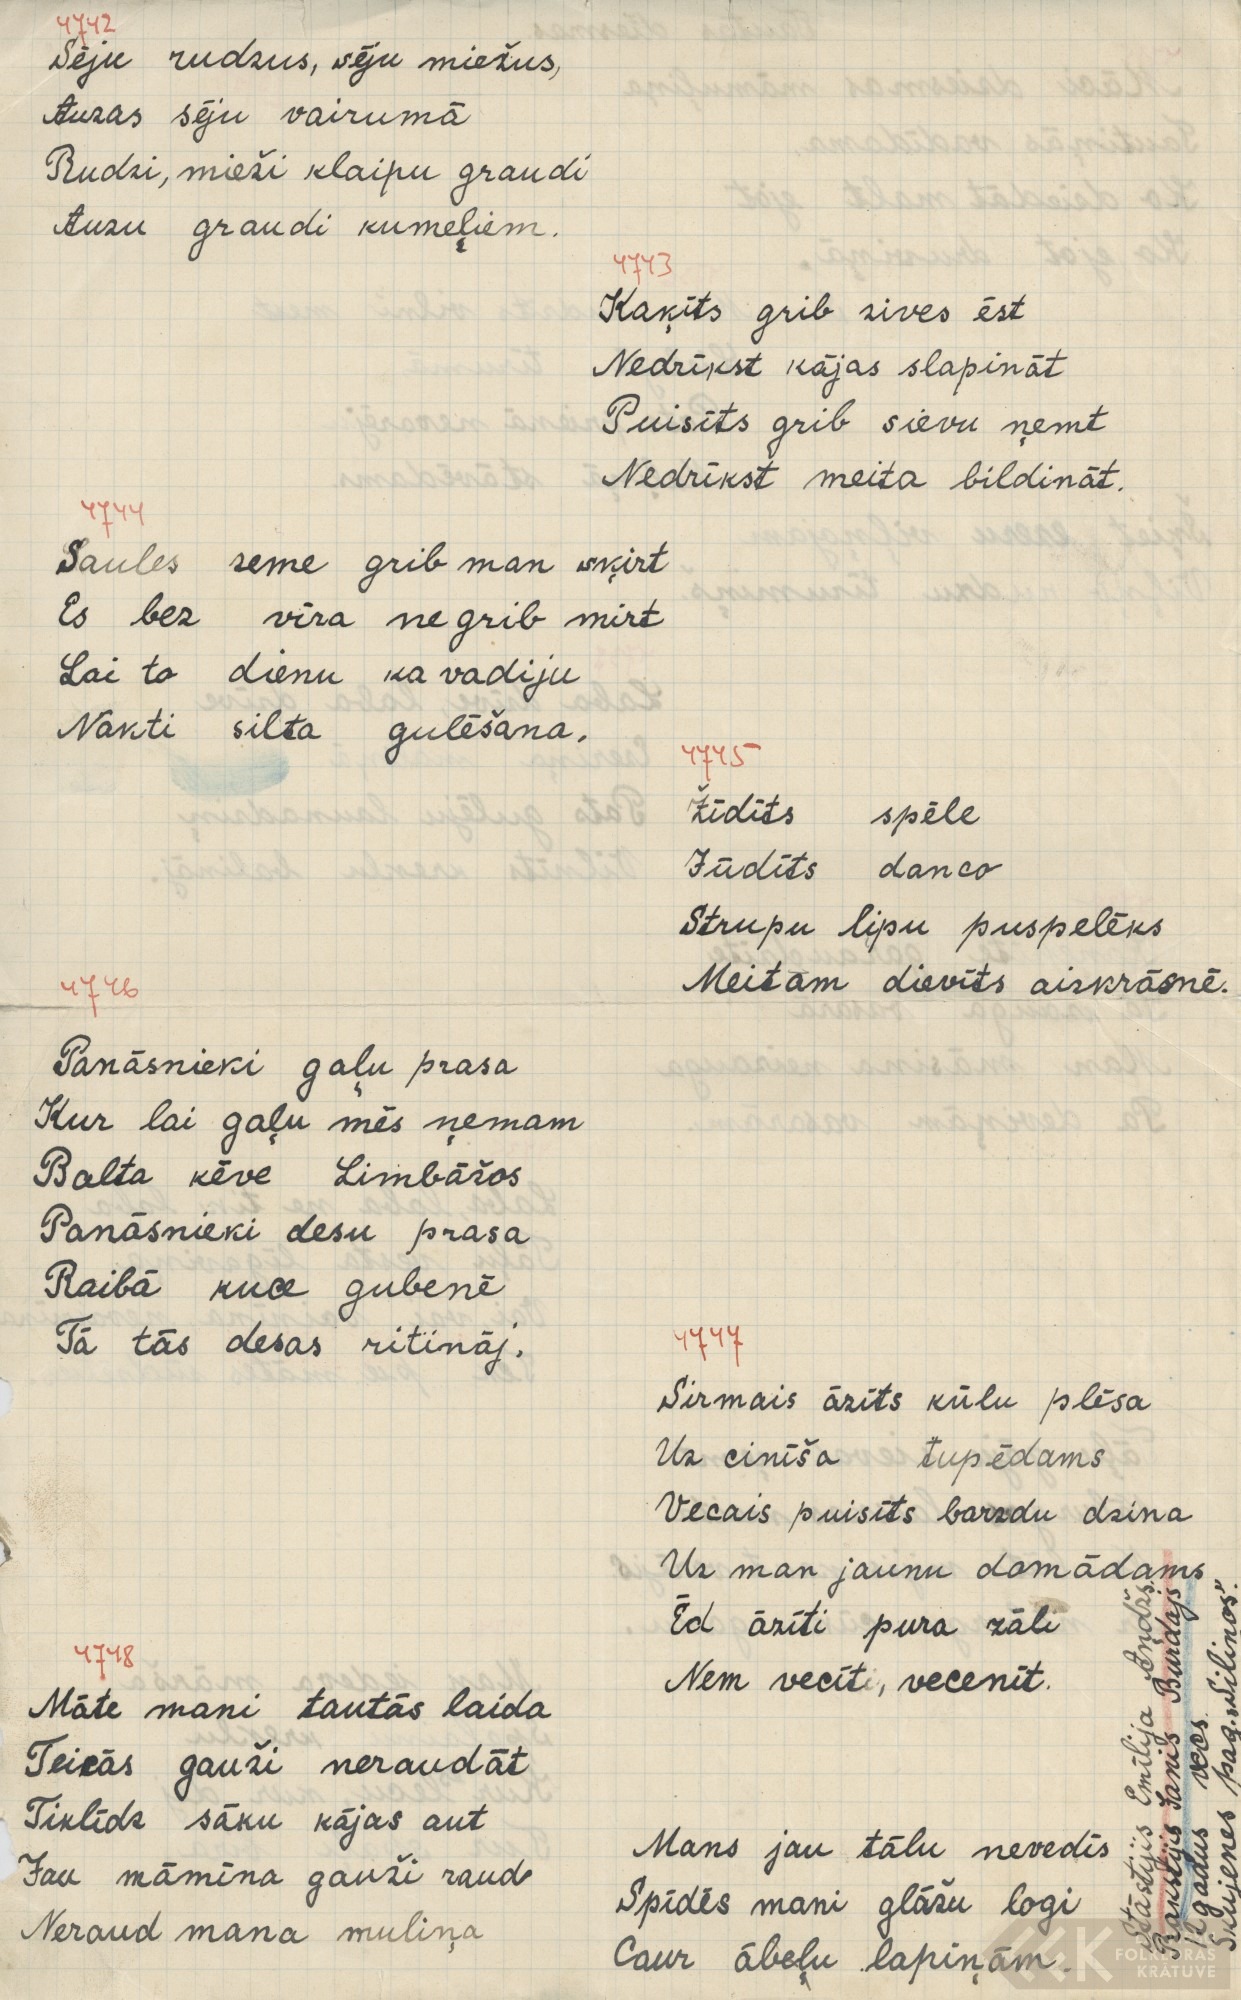 4742
Sēju rudzus, sēju miežus,
Auzas sēju vairumā
Rudzi, mieži klaipu graudi
Auzu graudi kumeļiem.
4743
Kaķīts grib zives ēst
Nedrīkst kājas slapināt
Puisīts grib sievu ņemt
Nedrīkst meita bildināt.
4744
Saules zeme grib man šķirt
Es bez vīra negrib mirt
Lai to dienu ka vadiju
Nakti silta gulēšana.
4745
Žīdīts spēle
Jūdīts danco
Strupu lipu puspelēks
Meitām dievīts aizkrāsnē.
4746
Panāsnieki gaļu prasa
Kur lai gaļu mēs ņemam
Balta ķēve Limbāžos
Panāsnieki desu prasa
Raibā kuce gubenē
Tā tās desas ritināj.
4747
Sirmais āzīts kūlu plēsa
Uz cinīša tupēdams
Vecais puisīts barzdu dzina
Uz man jaunu domādams
Ēd āzīti pura zāli
Nem vecīti, vecenīt.
4748
Māte mani tautās laida
Teicās gauži neraudāt
Tiklīdz sāku kājas aut
Jau māmīna gauži raud
Neraud mana muliņa
Mans jau tālu nevedīs
Spīdēs mani glāžu logi
Caur ābeļu lapiņām.
Stāstījis Emīlija Andžs.
Rakstījis Janis Burdajs
12 gadus vecs.
Skujenes pag. "Siliņos".
FOLKLORAS
KRĀTUVE